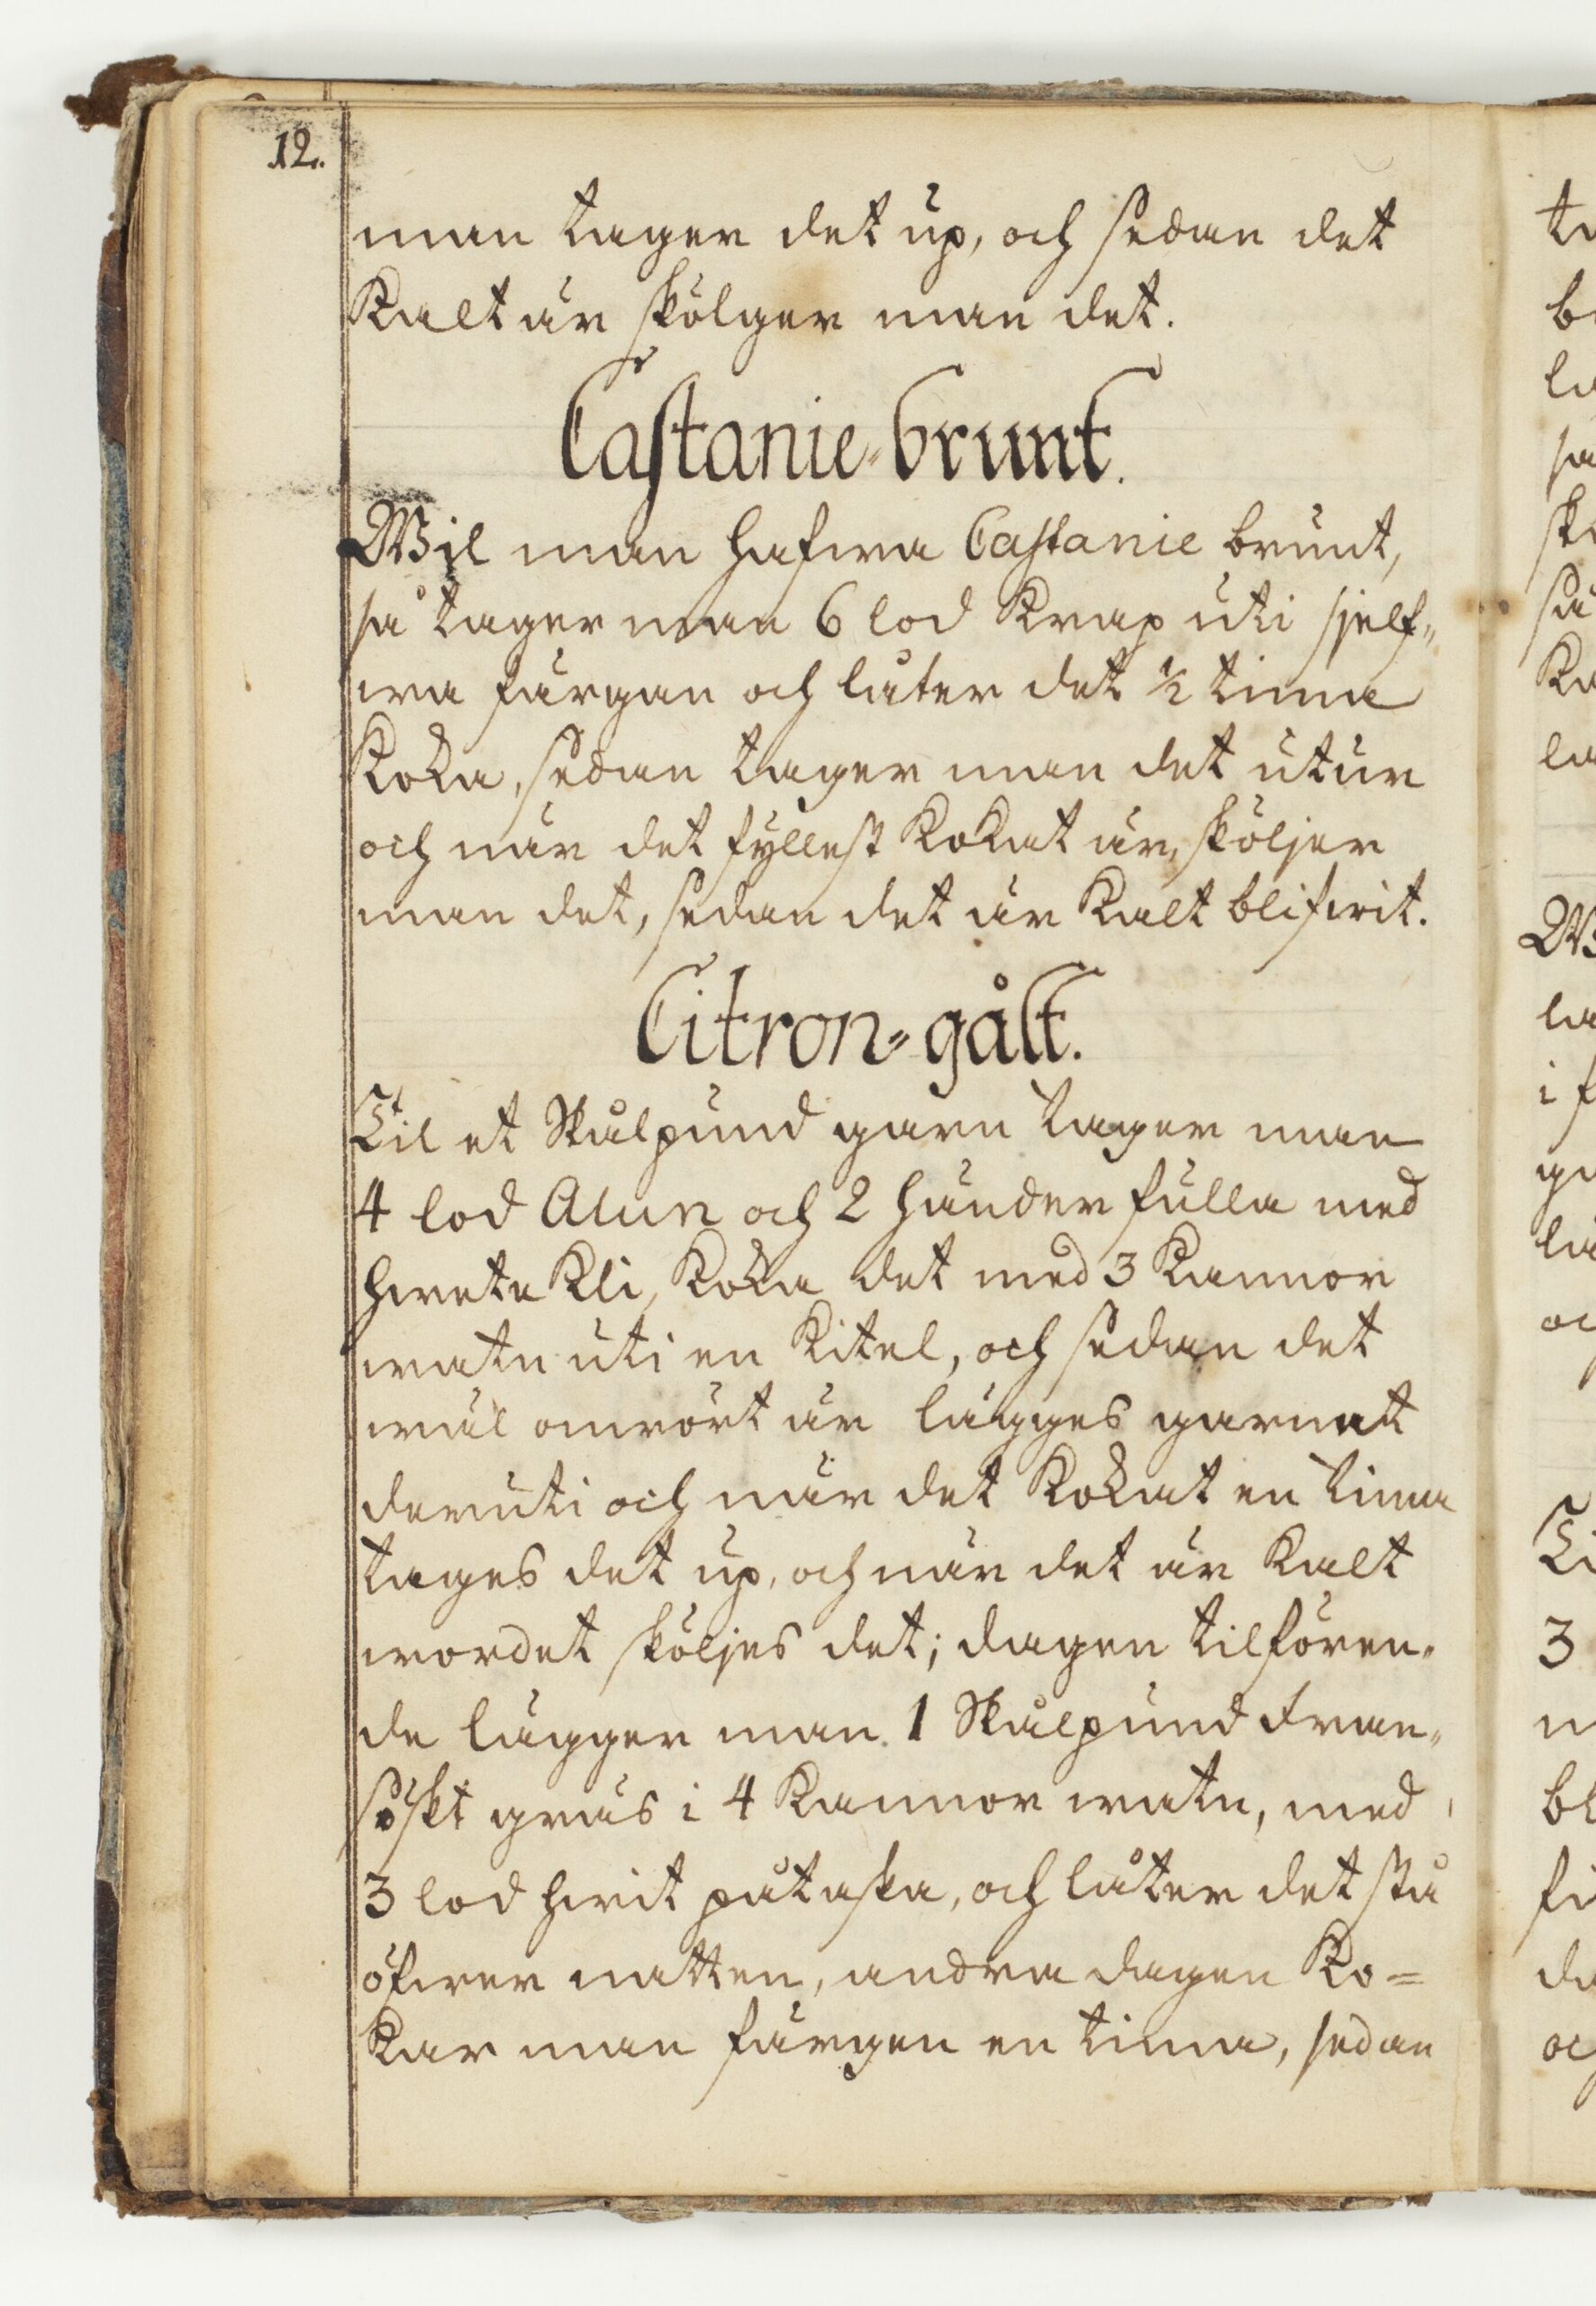 12.
man tager det up, och sedan det
Kalt är skölger man det.
Castanie-brunt.
Wil man hafwa Castanie brunt,
så tager man 6 lod Krap uti sjelf=
wa färgan och låter det ½ tima
Koka, sedan tager man det utur
och när det fyllest Kokat är, sköljer
man det, sedan det är Kalt blifwit.
Citron=gålt.
Til et Skålpund garn tager man
4 lod Alun och 2 händer fulla med
hwete Kli, Koka det med 3 Kannor
watn uti en Kitel, och sedan det
wäl omrört är lägges garnet
deruti och när det Kokat en tima
tages det up, och när det är Kalt
wordet sköljes det; dagen tilfören=
de lägger man 1 Skålpund Fran=
söskt gräs i 4 Kannor watn, med
3 lod hwit påtaska, och låter det stå
öfwer natten, andra dagen Ko=
Kar man färgen en tima, sedan